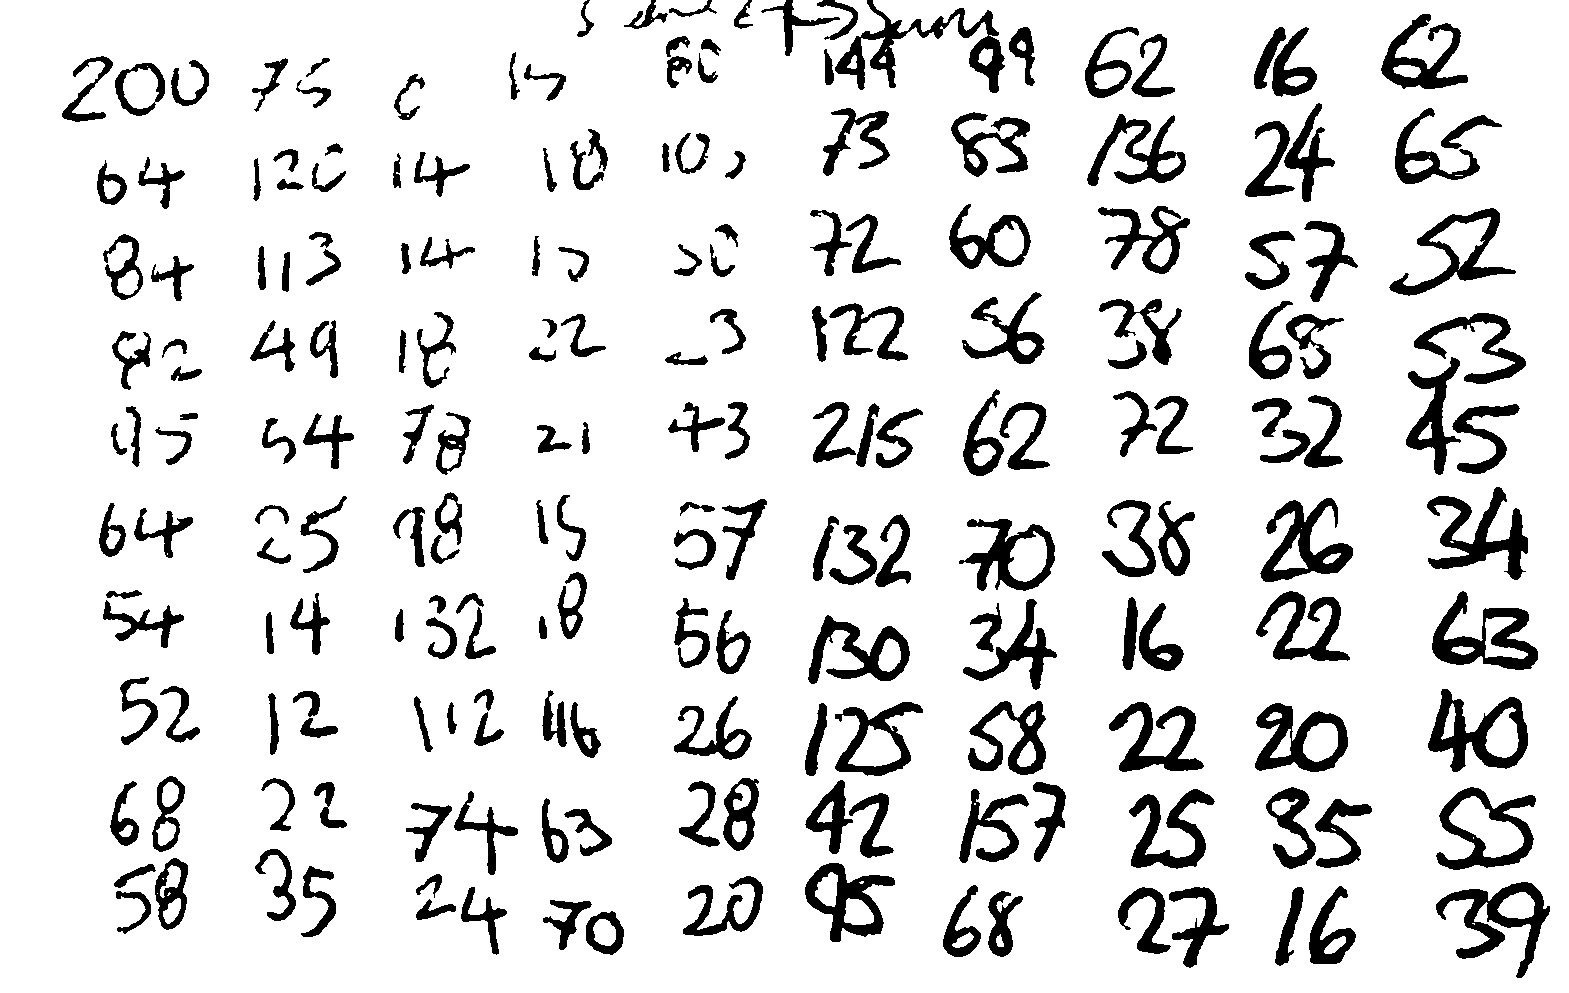 200 75 0 15 80 144 99 62 16 62
64 120 14 18 10 73 83 136 24 65
84 113 14 15 50 72 60 78 57 52
82 49 18 22 23 122 56 38 65 53
95 54 78 21 43 215 62 72 32 45
64 25 98 15 57 132 70 38 26 34
54 14 132 18 56 130 34 16 22 63
52 12 112 116 26 125 58 22 20 40
68 22 74 63 28 42 157 25 35 55
58 35 24 70 20 95 68 27 16 39